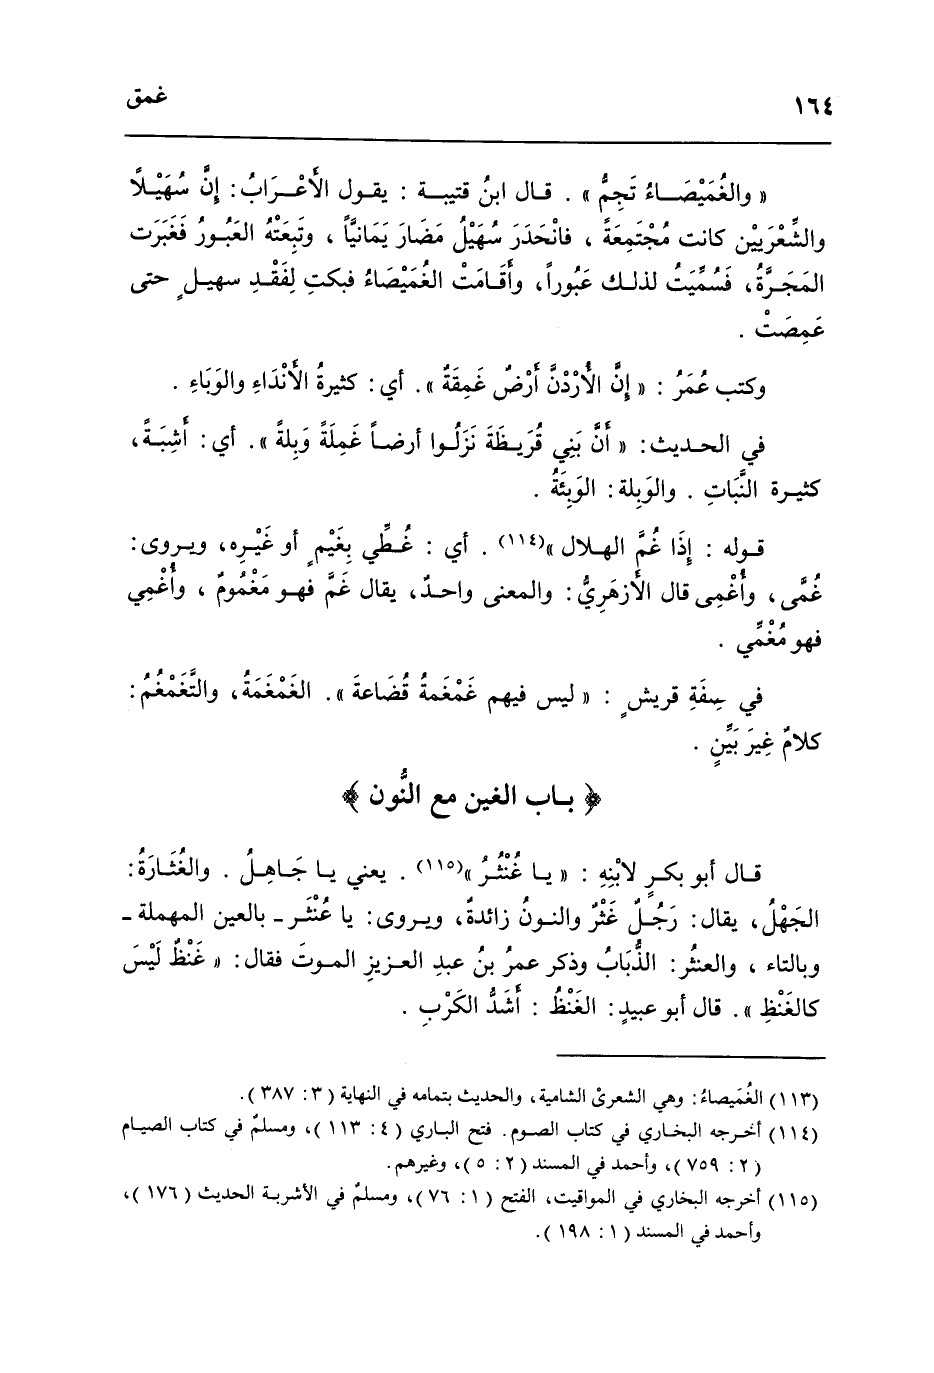 ١٦٤
غمق
« والغُمَيْصَاءُ تَجِمُّ » . قال ابنُ قتيبة : يقول الأَعْرَابُ: إنَّ سُهَيْلاً
والشِّعْرَيَيْن كانت مُجْتَمِعَةً ، فانْحَدَرَ سُهَيْلُ مَضَارَ يَمَانيَّاً ، وتَبِعَتْهُ العَبُورُ فَغَبَرَت
المَجَرَّةُ، فَسُمِّيَتُ لذلك عَبُوراً، وأَقَامَتْ الغُمَيْصَاءُ فبكتِ لِفَقْدِ سهيلٍ حتى
غَمِصَتْ .
وكتب عُمَرُ : « إنَّ الأُرْدْنَّ أَرْضٌ غَمِقَةٌ ». أي: كثيرةُ الأَنْدَاءِ والوَبَاءِ .
في الحديث: « أَنَّ بَنِي قُرَيظَةَ نَزَلُوا أرضاً غَمِلَةً وَبِلةً ». أي: أَشِبَةً،
كثيرة النَّبَاتِ . والوَبِلة: الوَبِئَةُ .
قوله : إذَا غُمَّ الهلال »(١١٤) . أي : غُطِّي بِغَيْمٍ أو غَيْرِه، ويروى:
غُمَّى، وأُغْمِى قال الأَزهَرِيُّ: والمعنى واحدٌ، يقال غَمَّ فهو مَغْمُومٌ ، وأُغْمِي
فهو مُغْمِّي .
في صِفَةِ قريشٍ : « ليس فيهم غَمْغَمةُ قُضَاعةَ ». الغَمْغَمَةُ، والتَّغَمْغُمُ:
كلامٌ غيرَ بَيِّنٍ .
﴿ باب الغين مع النُّون ﴾
قال أبو بكرٍ لابْنِهِ : « يا غُنْثُرُ »(١١٥) . يعني يا جَاهِلُ . والغُثَارَةُ:
الجَهْلُ، يقال: رَجُلٌ غَثْرٌ والنونُ زائدةٌ، ويروى: يا عُنْتَر - بالعين المهملة -
وبالتاء ، والعنتُر: الذُّبَابُ وذكر عمرُ بنُ عبدِ العزيزِ الموتَ فقال: « غَنْظٌ لَيْسَ
كالغَنْظِ ». قال أبو عبيدٍ: الغَنْظُ : أَشَدُّ الكَرْبِ .
(١١٣) الغُمَيصاءُ: وهي الشعرىْ الشامية، والحديث بتمامه في النهاية ( ٣: ٣٨٧ ).
(١١٤) أخرجه البخاري في كتاب الصوم. فتح الباري ( ٤: ١١٣ )، ومسلمٌ في كتاب الصيام
( ٢: ٧٥٩ )، وأحمد في المسند ( ٢: ٥ )، وغيرهم.
(١١٥) أخرجه البخاري في المواقيت، الفتح ( ١: ٧٦ )، ومسلمٌ في الأشربة الحديث ( ١٧٦ )،
وأحمد في المسند ( ١: ١٩٨ ).